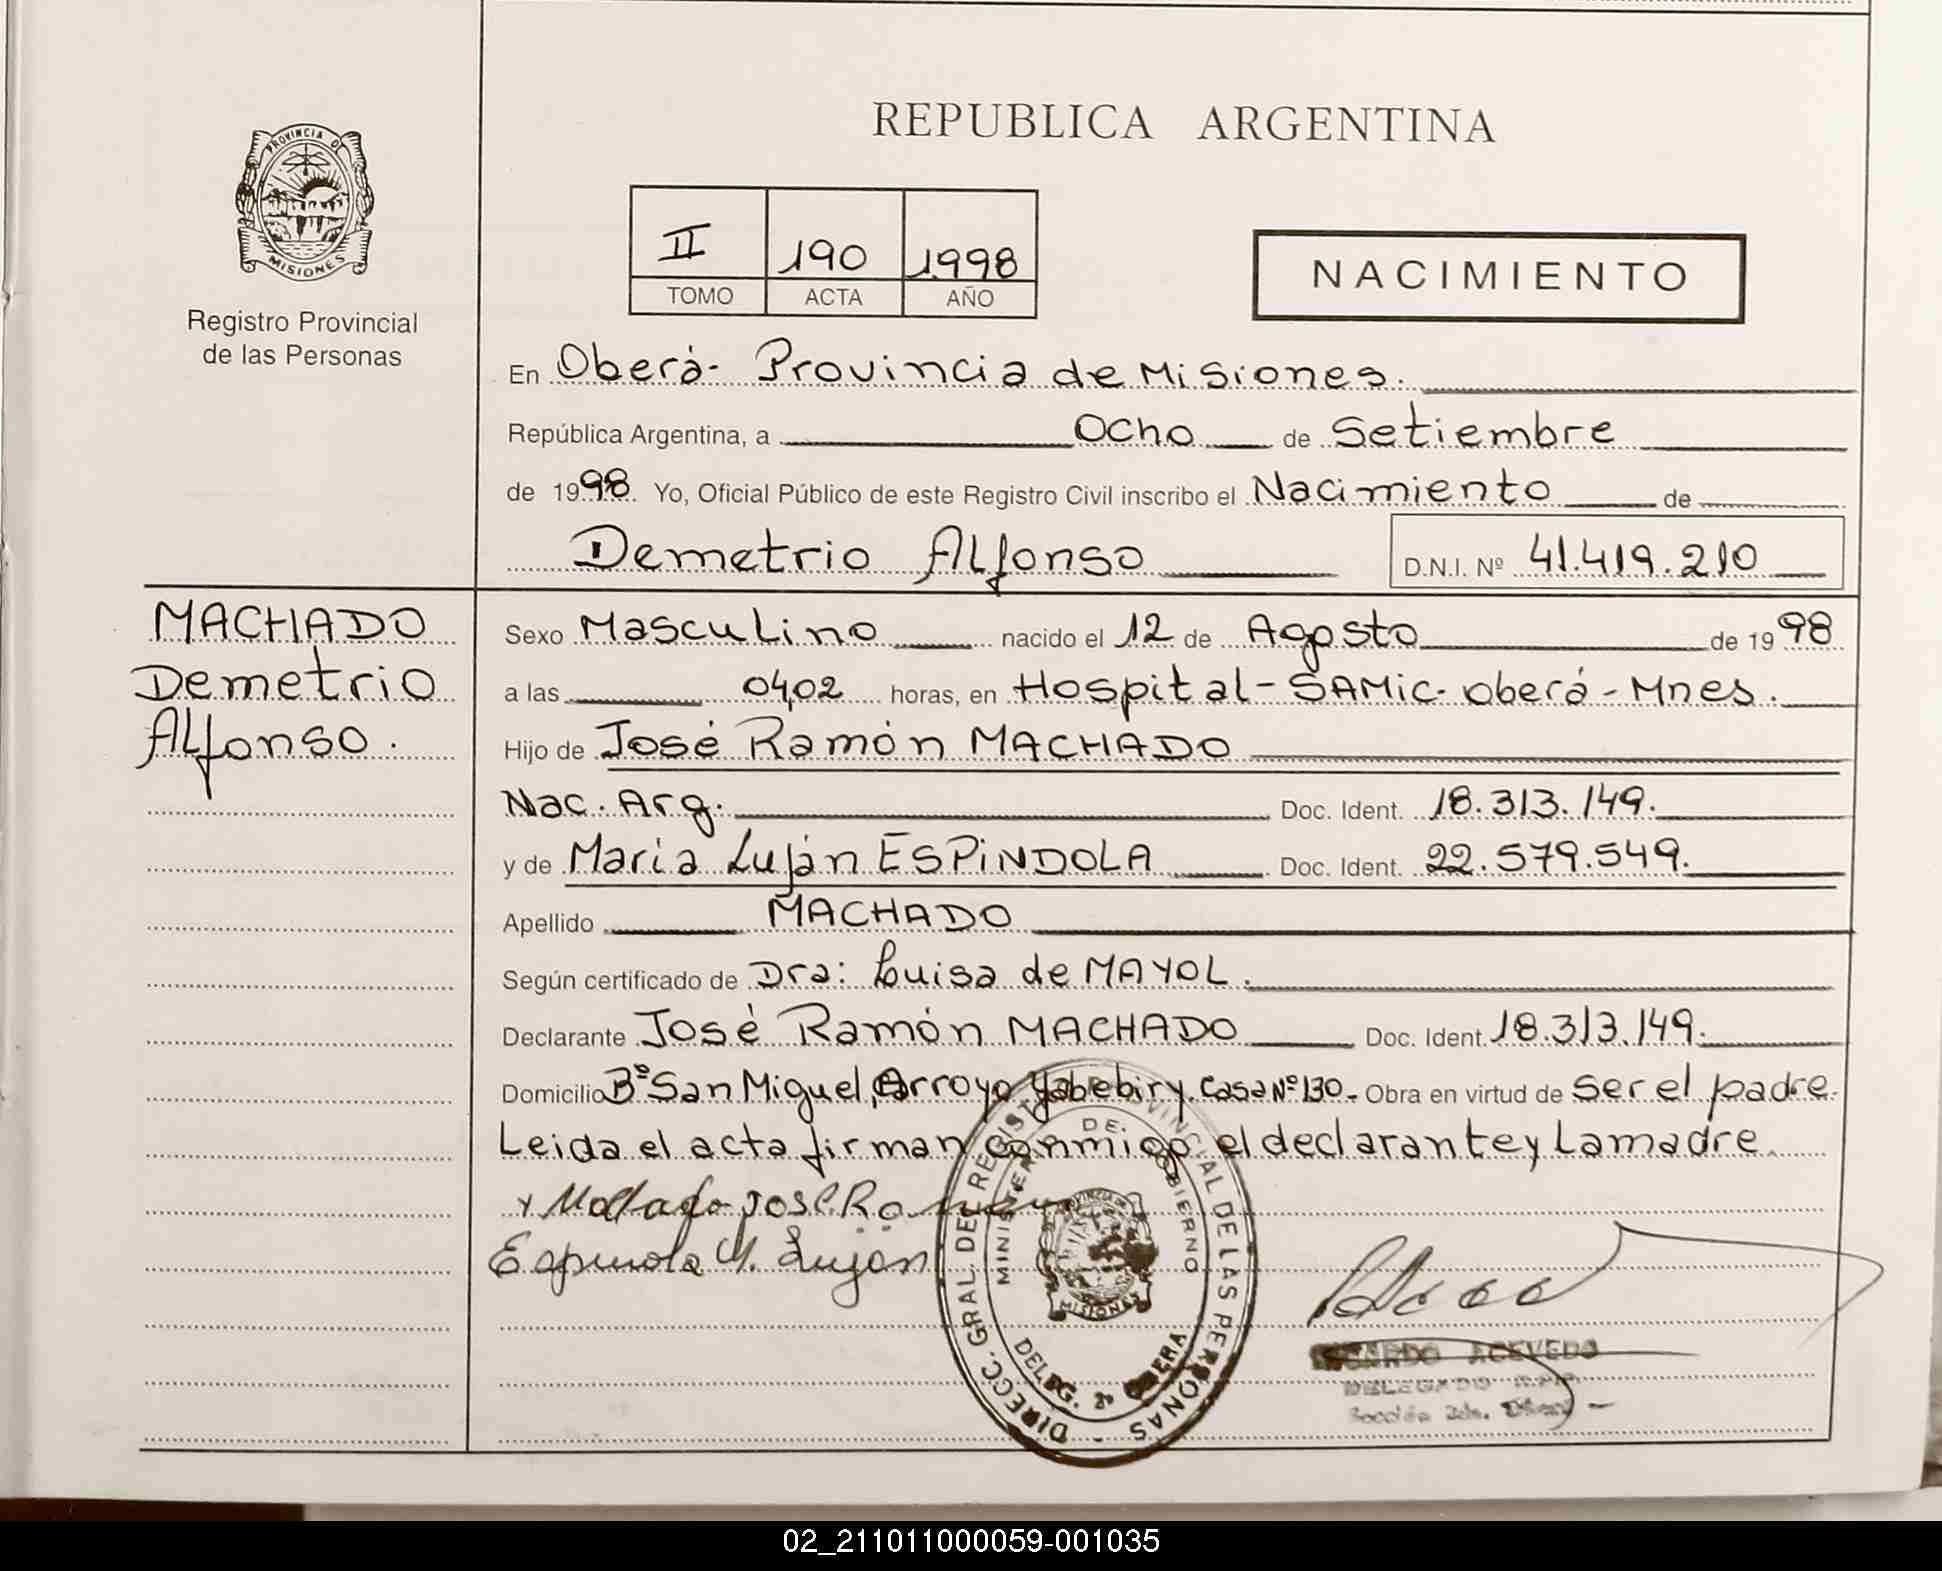 REPUBLICA ARGENTINA
PROVINCIA DE
MISIONES
Registro Provincial
de las Personas
II 190 1998
TOMO ACTA AÑO
NACIMIENTO
En Oberá- Provincia de Misiones.
República Argentina, a Ocho de Setiembre
de 1998. Yo, Oficial Público de este Registro Civil inscribo el Nacimiento de
Demetrio Alfonso D.N.I. Nº 41.419.210
MACHADO
Demetrio
Alfonso.
Sexo Masculino nacido el 12 de Agosto de 1998
a las 04,02 horas, en Hospital-SAMic-Oberá-Mnes.
Hijo de José Ramón MACHADO
Nac. Arg. Doc. Ident. 18.313.149.
y de María Luján ESPINDOLA Doc. Ident. 22.579.549.
Apellido MACHADO
Según certificado de Dra: Luisa de MAYOL.
Declarante José Ramón MACHADO Doc. Ident. 18.313.149.
Domicilio Bº San Miguel, Arroyo Yabebiry. Casa Nº 130.- Obra en virtud de Ser el padre.
Leida el acta firman conmigo el declarante y La madre.
Machado José Ramon
Espindola M. Luján
DIRECC. GRAL. DEL REGISTRO PROVINCIAL DE LAS PERSONAS -
MINISTERIO DE GOBIERNO
MISIONES
DELEG. 2ª OBERA
RICARDO ACEVEDO
DELEGADO R.P.P.
Sección 2da. Oberá
02_211011000059-001035